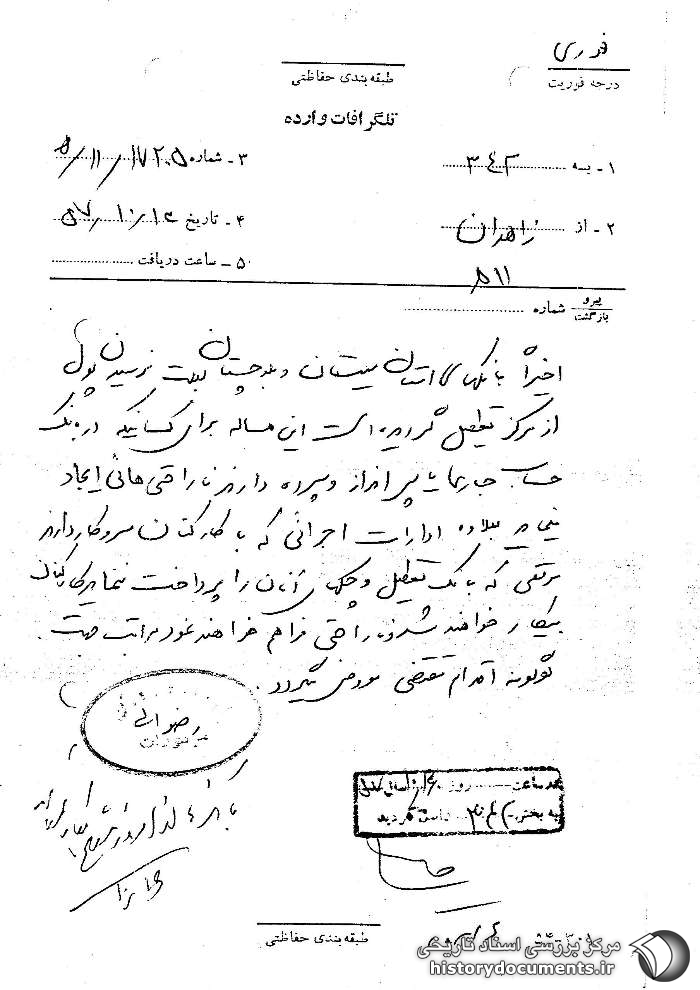 فوری
درجه فوریت
طبقه بندی حفاظتی
تلگرافات وارده
۱ - به ۳۴۲
۳ - شماره ۱۷۲۰۵ / ۱۱ / ه
۲ - از زاهدان
۴ - تاریخ ۵۷/۱۰/۱۴
۱۱ ه
۵ - ساعت دریافت
پیرو
بازگشت
شماره
اخیراً بانکهای استان سیستان و بلوچستان بعلت نرسیدن پول
از مرکز تعطیل گردیده است این مساله برای کسانیکه در بانک
حساب جاری یا پس انداز و سپرده دارند ناراحتی هائی ایجاد
مینماید بعلاوه ادارات اجرائی که با کارکنان سروکار دارند
موقعی که بانک تعطیل و چکهای آنان را پرداخت ننماید کارکنان
بیکار خواهند شد و ناراحتی فراهم خواهند نمود مراتب جهت
هرگونه اقدام مقتضی معروض میگردد.
رضوانی
طبقه بندی حفاظتی
مرکز بررسی اسناد تاریخی
historydocuments.ir